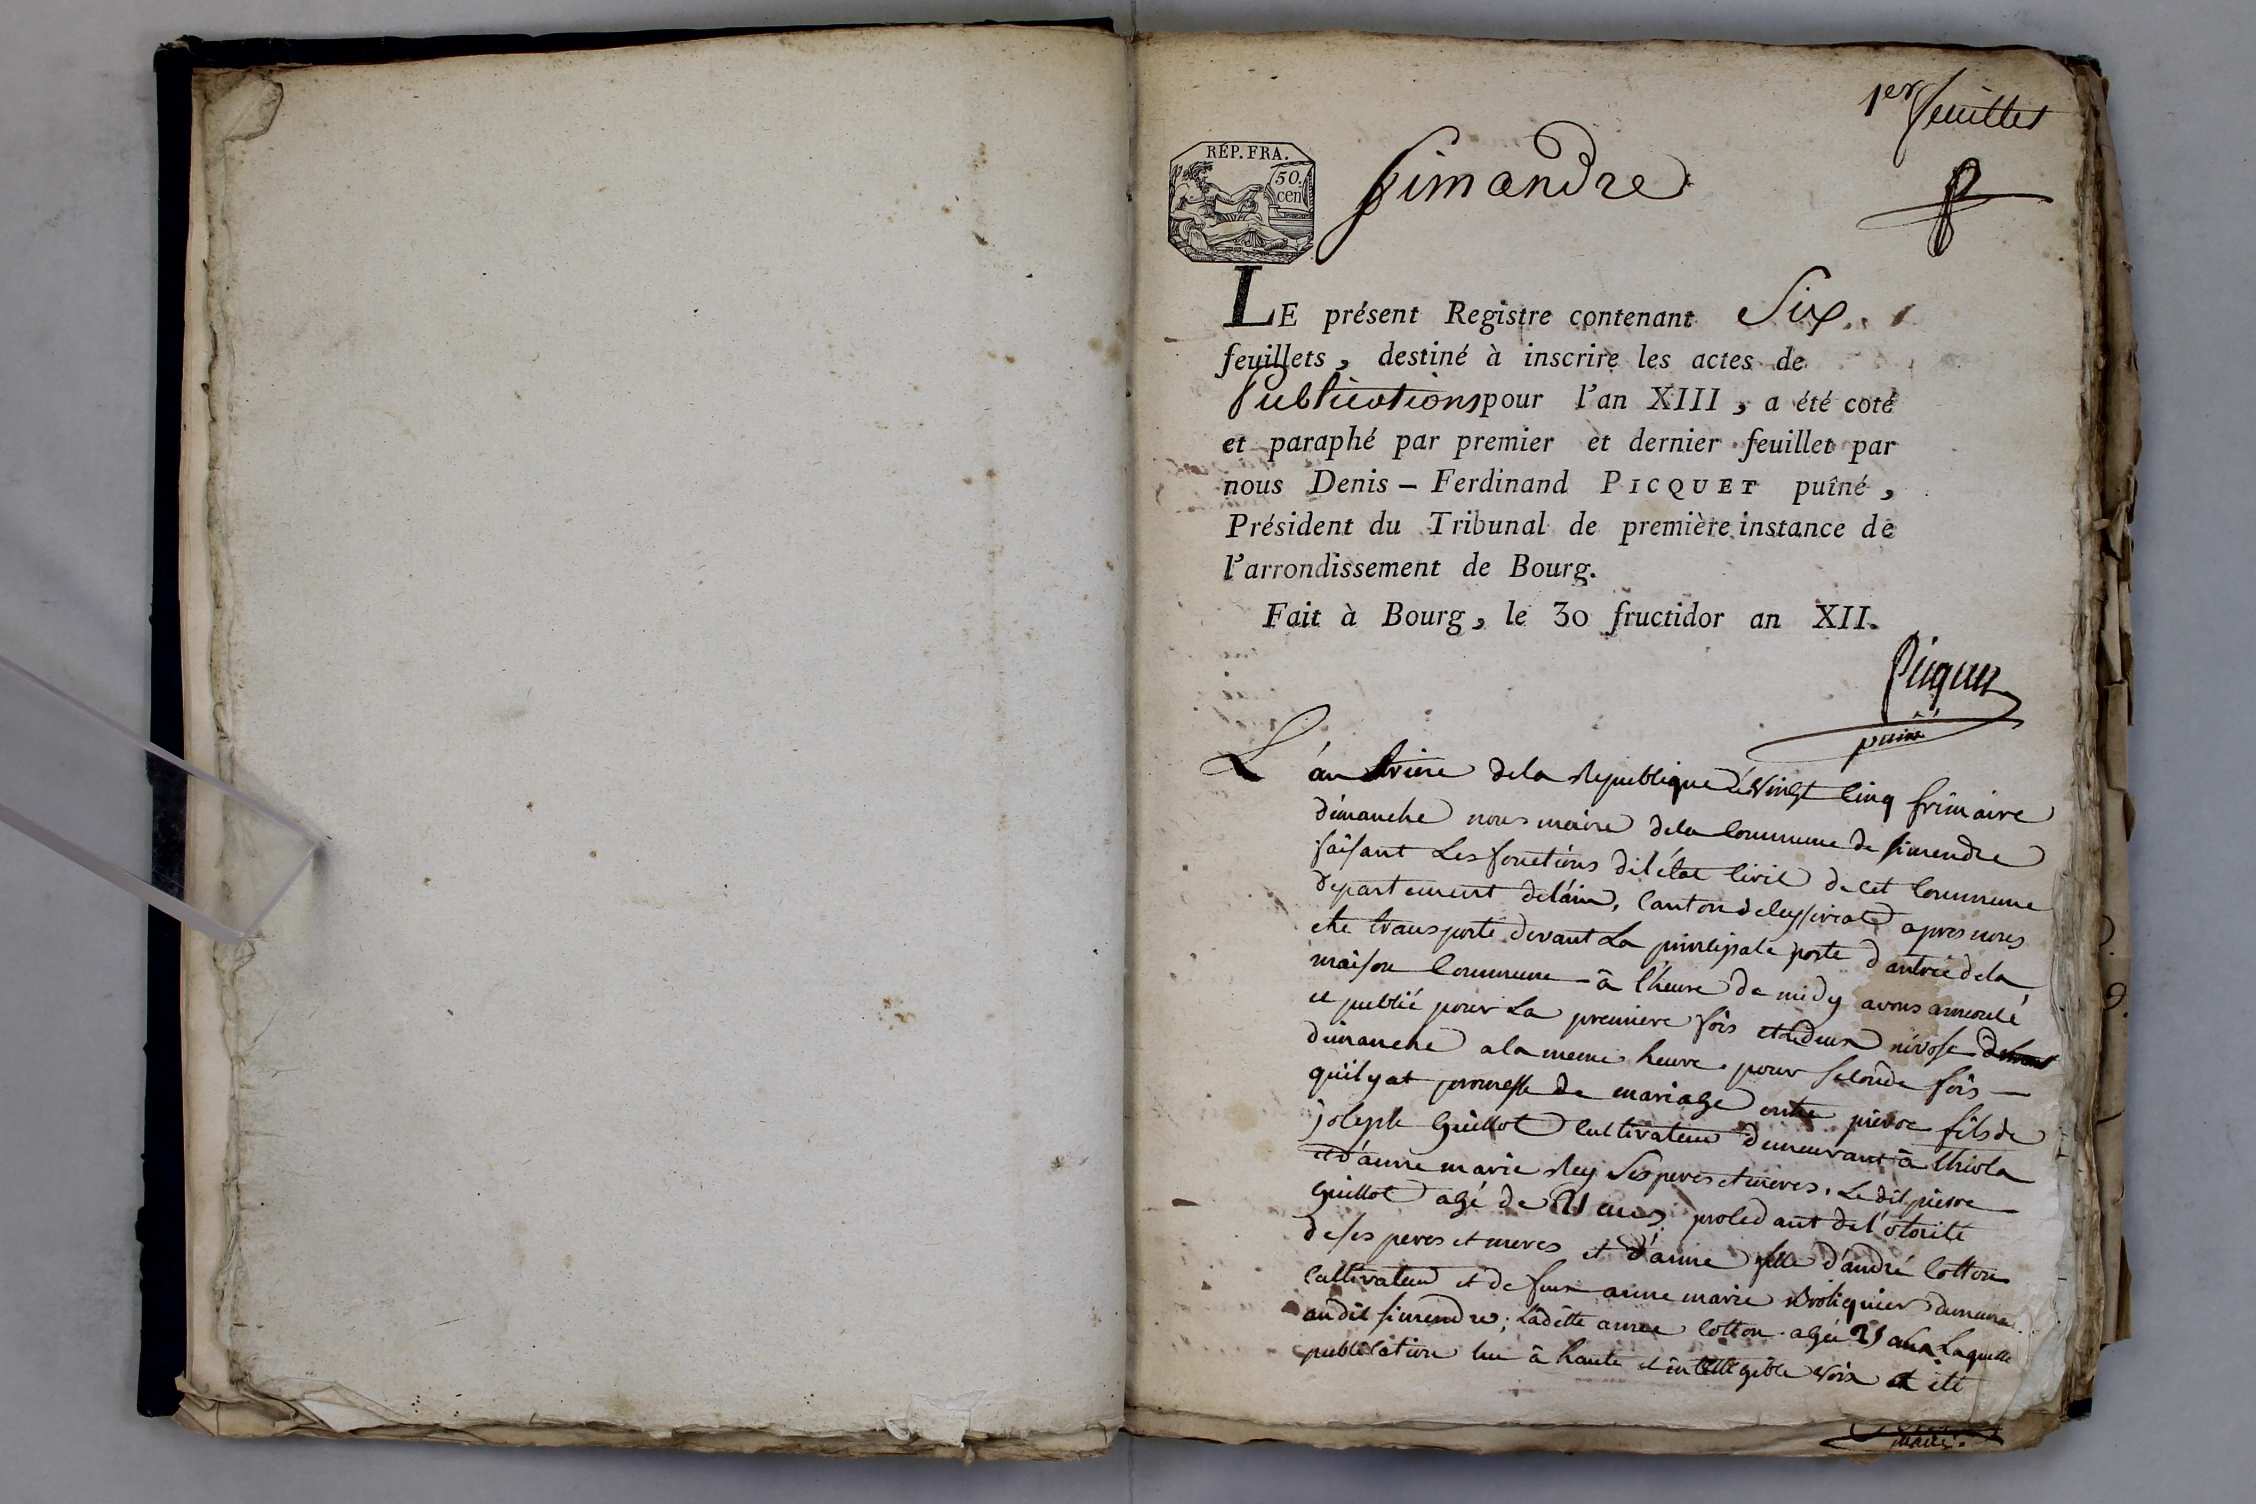 1er feuillet
RÉP. FRA.
50.
cen
Simandre
LE présent Registre contenant Six
feuillets, destiné à inscrire les actes de
Publications pour l'an XIII, a été coté
et paraphé par premier et dernier feuillet par
nous Denis-Ferdinand PICQUET puîné,
Président du Tribunal de première instance de
l'arrondissement de Bourg.
Fait à Bourg, le 30 fructidor an XII.
Picquet
puiné
L'an treise dela Republique le vingt cinq frimaire
dimanche nous maire dela Commune de simendre
faisant Les fonctions del'état Civil de cet Commune
departement delain, Canton de apres nous
etre transporté devant La principale porte d'antrée dela
maison Commune à l'heure de midy avons annoncé
et publié pour La premiere fois et le deux nivose
dimanche a la meme heure pour seconde fois —
quil y at promesse de mariage entre pierre fils de
joseph Guillot Cultivateur demeurant à
et d'anne marie Rey Ses peres et meres, Le dit pierre
Guillot agé de 21 ans procedant de l'otorité
de ses peres et meres et d'anne fille d'andré Cotton
Cultivateur et de feue anne marie
audit simendre; Laditte anne Cotton agée ans Laquelle
publication lue à haute et intelligible voix et été